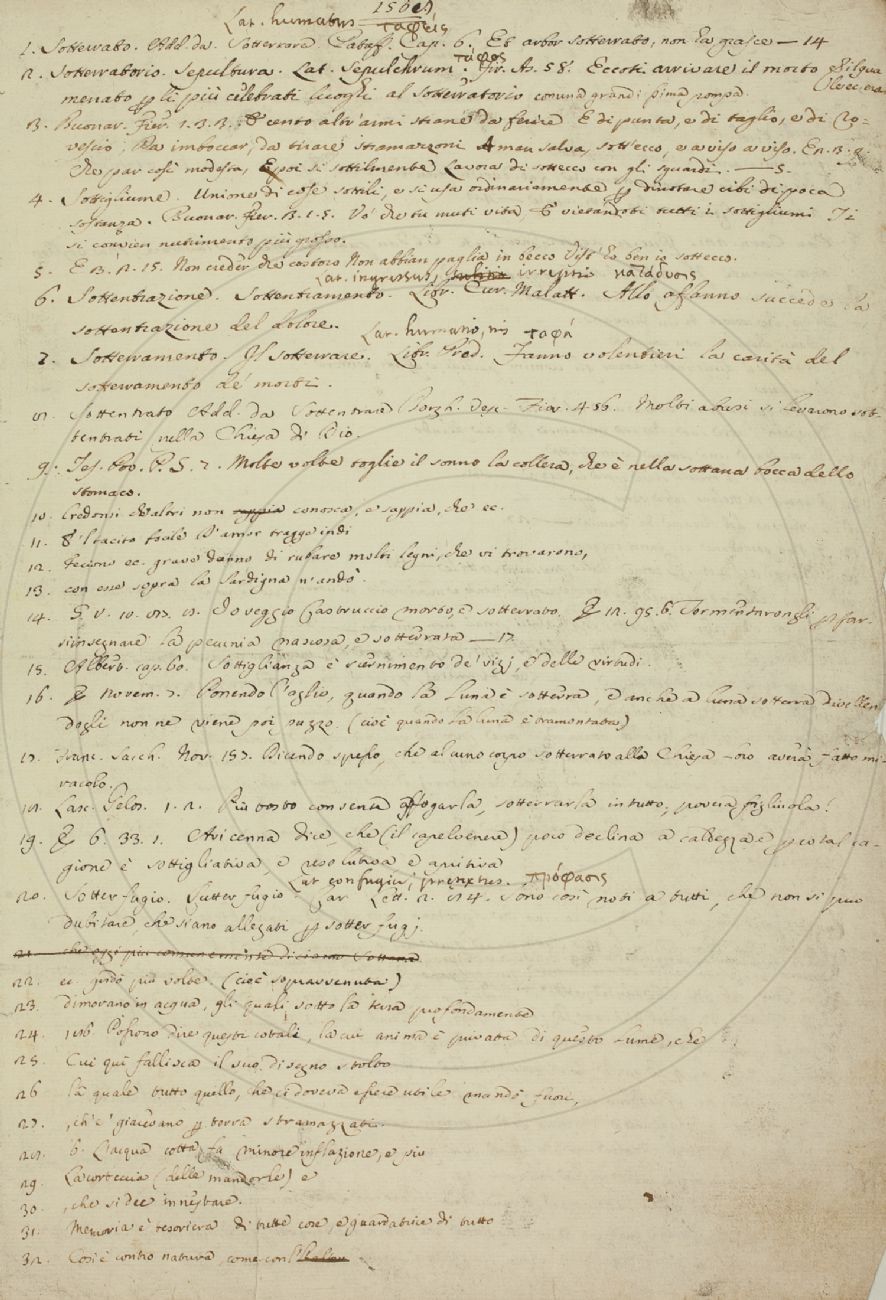 Lat. humatus ταφείς
1. Sotterrato. Add. da Sotterrare. Pataff. Cap. 6. Et arbor sotterrato, non ha grasce — 14
2. Sotterratorio. Sepultura. Lat. Sepulchrum τάφος. Fir. As. 58. Eccoti arrivare il morto
menato p li più celebrati luoghi al sotterratorio con una grandissima pompa.
3. Buonar. Fier. 1. 3. 3. E cento altr'armi strane da ferire E di punta, e di taglio, e di Ro-
vescio, Da imboccar, da tirare stramazzoni A man salva, sott'ecco, e a viso a viso. En. 3. 2.
Che par così modesta, E poi sì sottilmente Lavora di sottecco con gli sguardi. — 5.
4. Sottigliume. Unione di cose sottili, e si usa ordinariamente p dinotare cibi di poca
sostanza. Buonar. Fier. 3. 1. 5. Vo' che tu muti vita E vietandoti tutti i sottigliumi Ti
si convien nutrimento più grosso.
5. E 3. 2. 15. Non creder che costoro Non abbian paglia in becco Vist' ho ben io sottecco.
Lat. ingressus, irreptio κατάδυσις
6. Sottentrazione. Sottentramento. Libr. Cur. Malatt. Allo affanno succede la
sottentrazione del dolore.
Lat. humatio, nis ταφή
7. Sotterramento. Il sotterrare. Libr. Pred. Fanno volentieri la carità del
sotterramento de' morti.
8. Sottentrato Add. da Sottentrare Borgh. Vesc. Fior. 456. Molti abusi si levarono sot-
tentrati nella Chiesa di Dio.
9. Tes. Pov. P. S. 7. Molte volte toglie il sonno la collera, che è nella sottana bocca dello
stomaco.
10. Credonsi ch'altri non sappia conosca, e sappia, che ec.
11. E 'l tacito focile D'amor tragge indi
12. Feciono ec. grave danno di rubare molti legni, che vi trovarono,
13. con esse sopra la Sardigna n'andò.
14. G. V. 10. 87. 8. Io veggio Castruccio morto, e sotterrato. E 12. 95. 6. Tormentarongli p far-
si insegnare la pecunia nascosa, e sotterrata — 17
15. Albert. cap. 60. Sottiglianza è scernimento de' vizj, e delle virtudi.
16. E Novem. 7. Ponendo l'aglio, quando la luna è sotterra, e anche a luna sotterra divellen
dogli non ne viene poi puzzo. (cioè quando la luna è tramontata)
17. Franc. Sacch. Nov. 157. Dicendo spesso, che alcuno corpo sotterrato alla Chiesa loro averà fatto mi-
racolo.
18. Lasc. Gelos. 1. 2. Più tosto consente affogarla, sotterrarla in tutto, povera figliuola!
19. E 6. 33. 1. Avicenna dice, che (il capelvenere) poco declina a caldezza e p cotal ca-
gione è sottigliativa, e resolutiva e aperitiva
Lat. confugium, praetextus. πρόφασις
20. Sotterfugio. Sutterfugio Gar. Lett. 2. 14. Sono così noti a tutti, che non si può
dubitare, che siano allegati p sotterfugj.
21. che oggi più comunemente diciamo Sottana
22. ec. gridò più volte (cioè sopravvenuta)
23. dimorano in acqua, gli quali, sotto la terra profondamente
24. 1 Possono dire questi cotali, la cui anima è privata di questo lume, che
25. Cui quì fallisca il suo disegno stolto
26 la quale tutto quello, che ci doverà essere utile mandò fuori,
27. , ch'e' giacevano p terra stramazzati.
28. 6. L'acqua cotta fa minore inflazione, e più
29. La corteccia (delle mandorle) e
30. , che si dee innestare.
31. Memoria è tesoriera di tutte cose, e guardatrice di tutto
32. Così è contro natura, come con